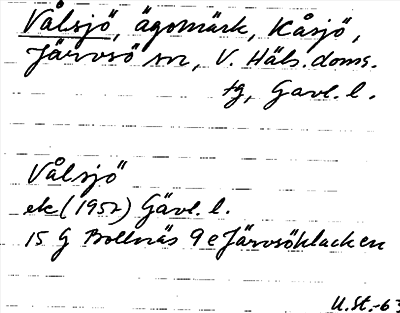 Vålsjö, ägomärk, Kåsjö,
Järvsö sn, V. Häls. doms.
tg, Gävl. l.
Vålsjö
ek (1957) Gävl. l.
15 G Bollnäs 9e Järvsöklacken
U.St.-63